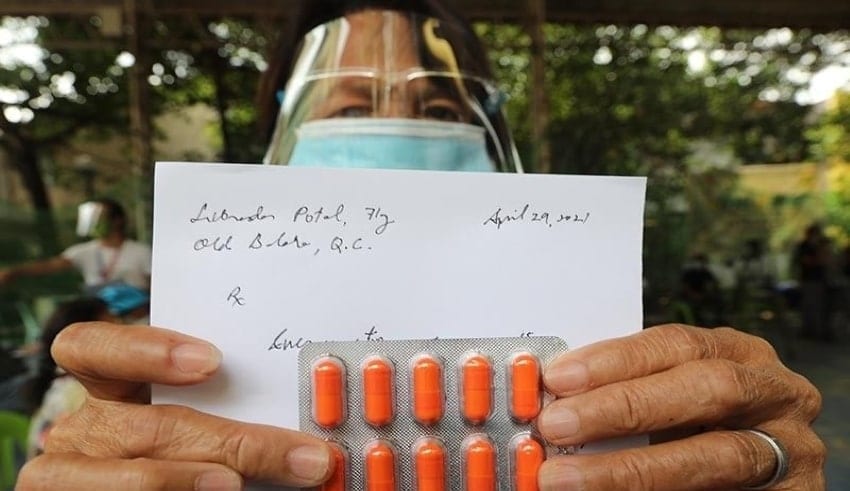 Librador Potal, 71y April 29, 2021
Old Balara, Q.C.
Rx